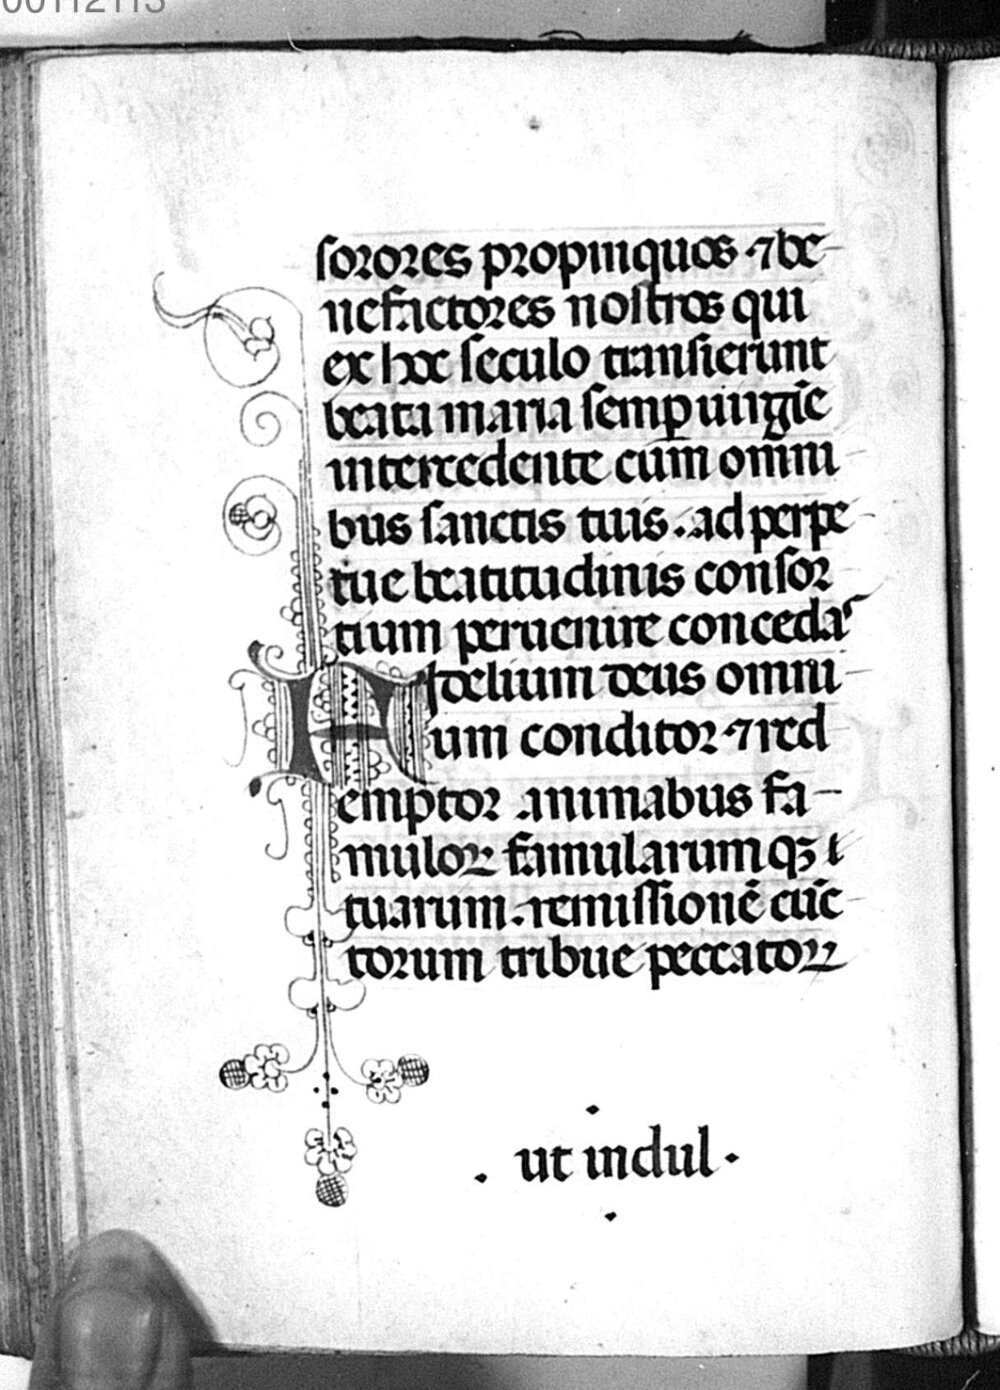 00112113
sorores propinquos ⁊ be
nefactores nostros qui
ex hoc seculo transierunt
beata maria semꝑ uirgīe
intercedente cum om̄ni
bus sanctis tuis. ad perpe
tue beatitudinis consor
tium peruenire concedas
Fidelium deus omni
um conditor ⁊ red
emptor animabus fa
muloꝝ famularumqꝫ t
tuarum. remissionē cūc
torum tribue peccatoꝝ
. ut indul .